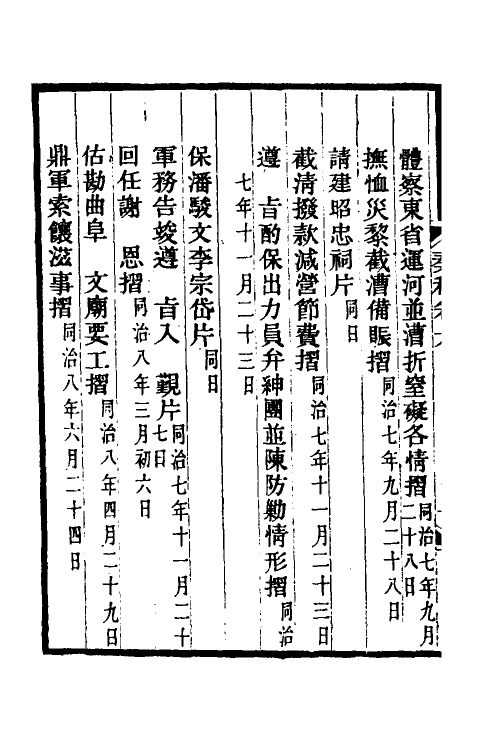 體察東省運河並漕折窒礙各情摺同治七年九月二十八日
撫恤災黎截漕備賑摺同治七年九月二十八日
請建昭忠祠片同日
截清撥款減營節費摺同治七年十一月二十三日
遵　旨酌保出力員弁紳團並陳防勦情形摺同治
七年十一月二十三日
保潘駿文李宗岱片同日
軍務告竣遵　旨入　覲片同治七年十一月二十七日
回任謝　恩摺同治八年三月初六日
估勘曲阜　文廟要工摺同治八年四月二十九日
鼎軍索饟滋事摺同治八年六月二十四日